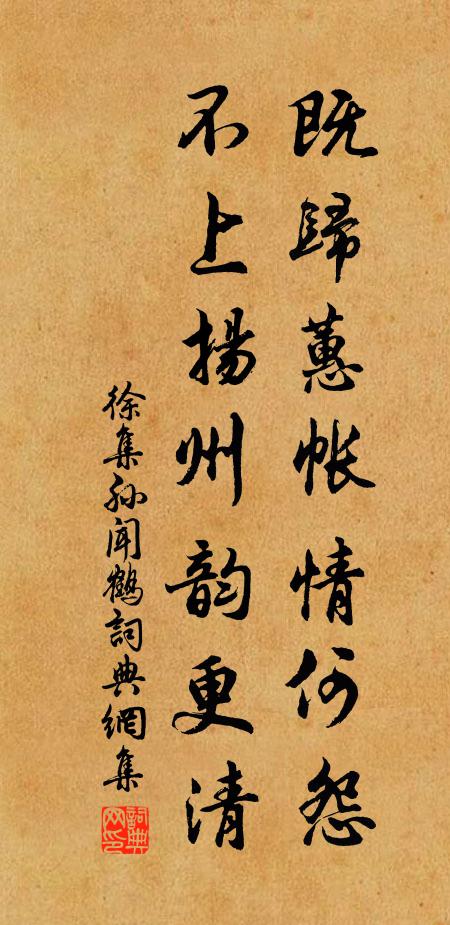 既歸蕙帐情何怨
不上揚州韵更清
徐集孙闻鶴詞典網集
詞典网印